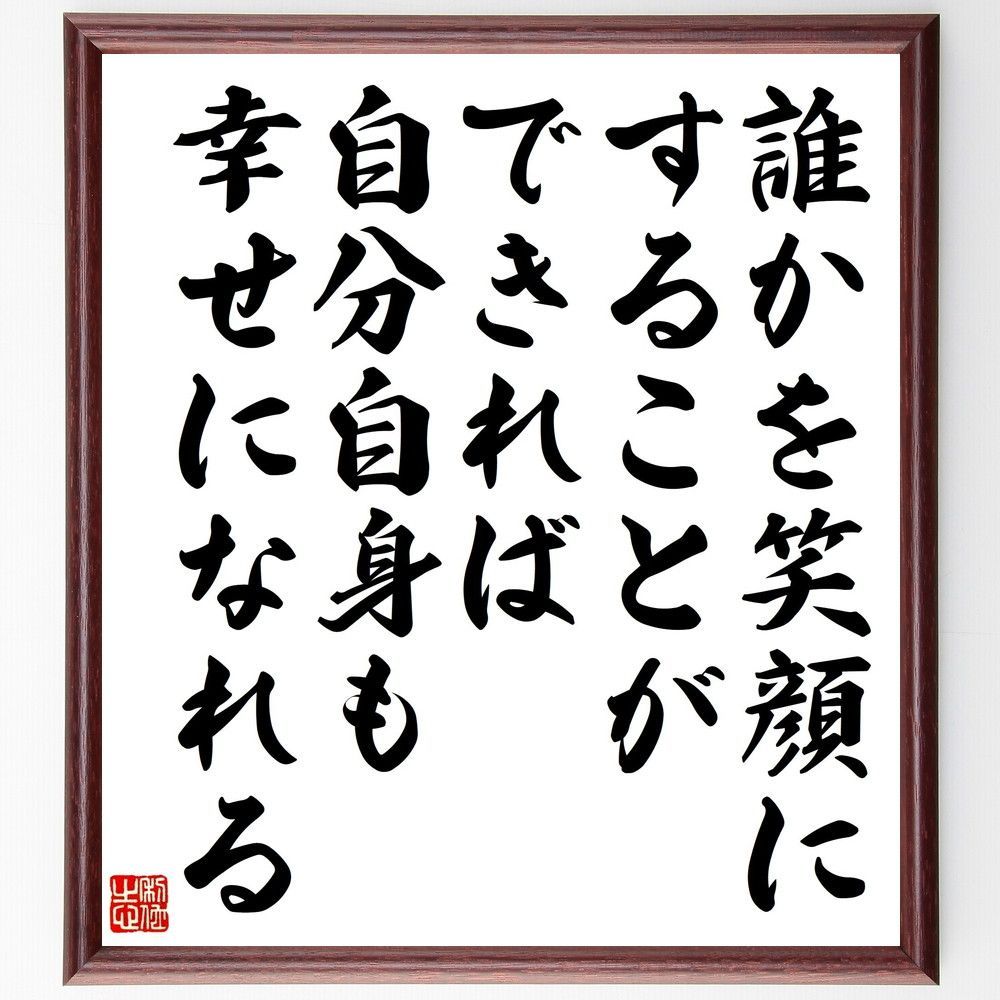 誰かを笑顔に
することが
できれば
自分自身も
幸せになれる